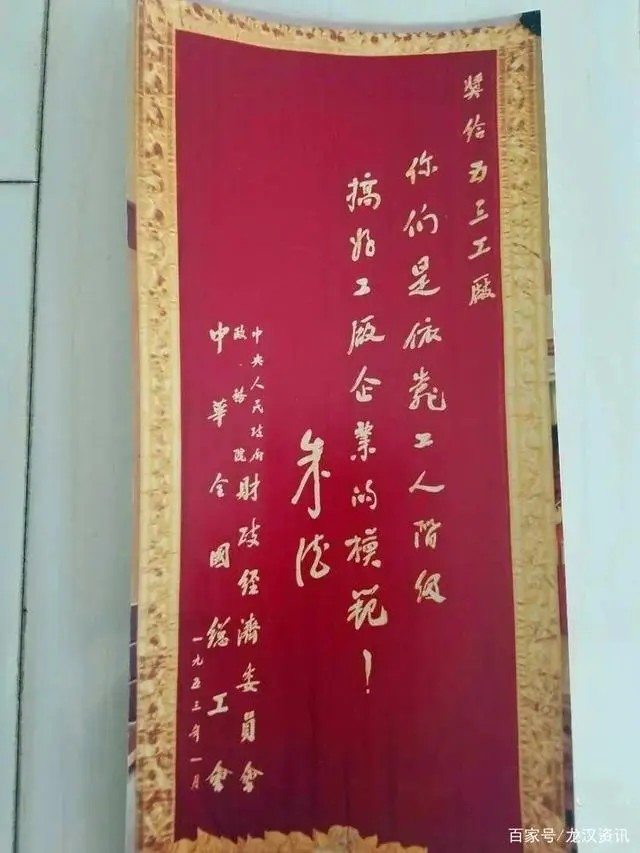 獎给五三工廠
你们是依靠工人階级
搞好工廠企業的模範！
朱德
中央人民政府
政务院
財政经濟委員會
中華全國總工會
一九五三年一月
百家号/龙汉资讯